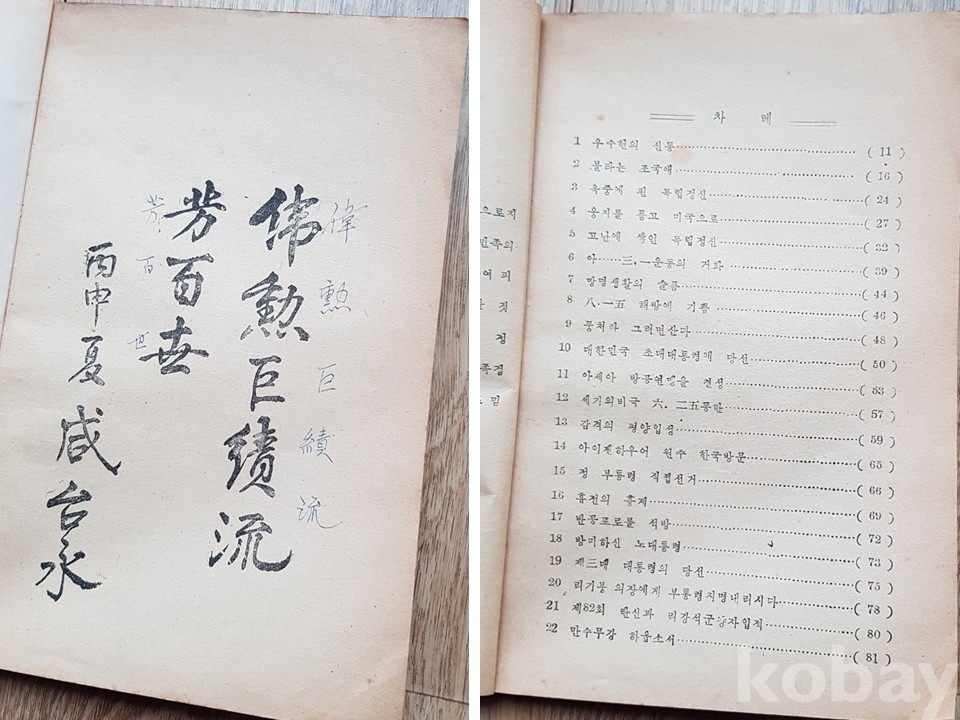 偉
勳
巨
績
流
偉勲巨績流
芳百世
芳
百
世
丙申夏 咸台永
으로지
민족의
여 피
짓
정
족정
밑
차 례
1 우수현의 신동……………………( 11 )
2 불타는 조국애……………………( 16 )
3 옥중에 핀 독립정신……………………( 24 )
4 웅지를 품고 미국으로……………………( 27 )
5 고난에 싸인 독립정신……………………( 32 )
6 아……三,一운동의 거화……………………( 39 )
7 망명생활의 슬픔……………………( 44 )
8 八.一五 해방에 기쁨……………………( 46 )
9 뭉처라 그러면산다……………………( 48 )
10 대한민국 초대대통령에 당선……………………( 50 )
11 아세아 방공연맹을 결성……………………( 53 )
12 세기의비극 六.二五동란……………………( 57 )
13 감격의 평양입성……………………( 59 )
14 아이젠하우어 원수 한국방문……………………( 65 )
15 정 부통령 직접선거……………………( 66 )
16 휴전의 흉계……………………( 69 )
17 반공포로를 석방……………………( 72 )
18 방미하신 노대통령……………………( 73 )
19 제三대 대통령의 당선……………………( 75 )
20 리기붕 의장에게 부통령지명내리시다……………………( 78 )
21 제82회 탄신과 리강석군양자입적……………………( 80 )
22 만수무강 하옵소서……………………( 81 )
kobay